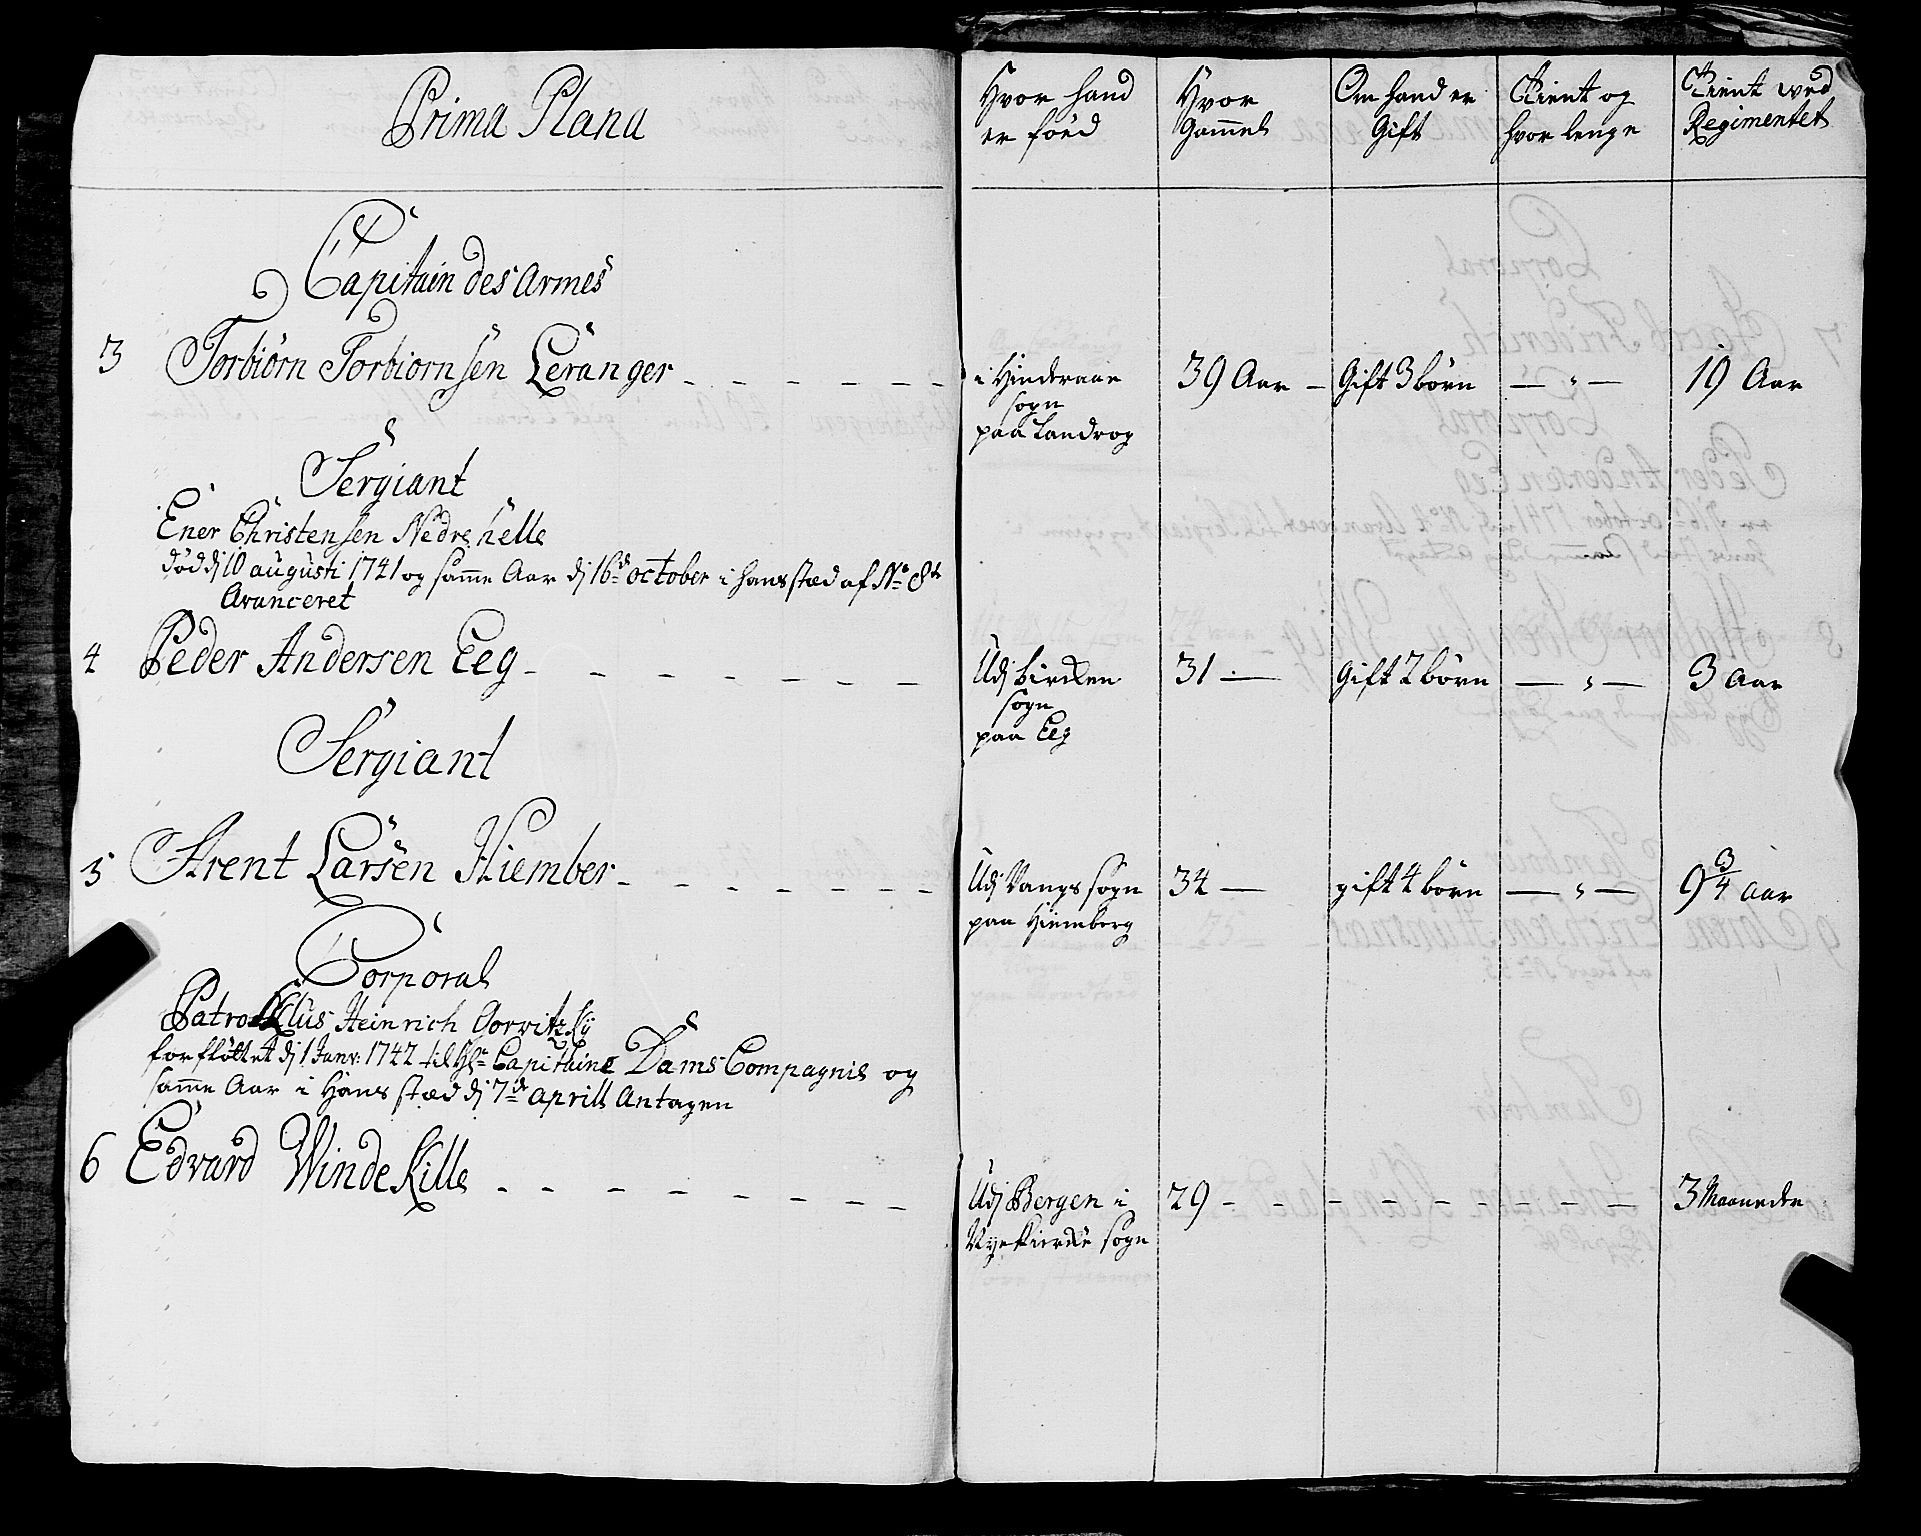 Prima Plana
Hvor hand er föed
Hvor Gam̄el
Om hand er Gift
Tient og hvor lenge
Tient ved Regimentet
Capitain des Armes
3 Torbiörn Torbiornsen Leranger - - - - - -
i Hinderaae sogn paa
39 Aar - Gift 3 börn — " — 19 Aar
Sergiant
Ener Christensen Nedrehelle
död dj 10 augusti 1741 og sam̄e Aar dj 16de october i hans stæd af No 8te
Avanceret
4 Peder Andersen Eeg - - - - - - -
Udj Bircken sogn paa Eeg
31 — Gift 2 börn — " — 3 Aar
Sergiant
5 Arent Larsen Hiember - - - - - -
Udj Vangs sogn paa Hiemberg
34 — gift 4 börn — " — 9 3/4 Aar
Corporal
Patroclus Heinrich Gorvitzkij
forflöttet dj 1 Janv: 1742 til Hr Capitaine Dams Compagnie og
sam̄e Aar i Hans stæd dj 7de aprill Antagen
6 Edvard Windekille - - - - - - - -
Udj Bergen i Nyekircke sogn
29 - - - - - - - - 3 Maaneder